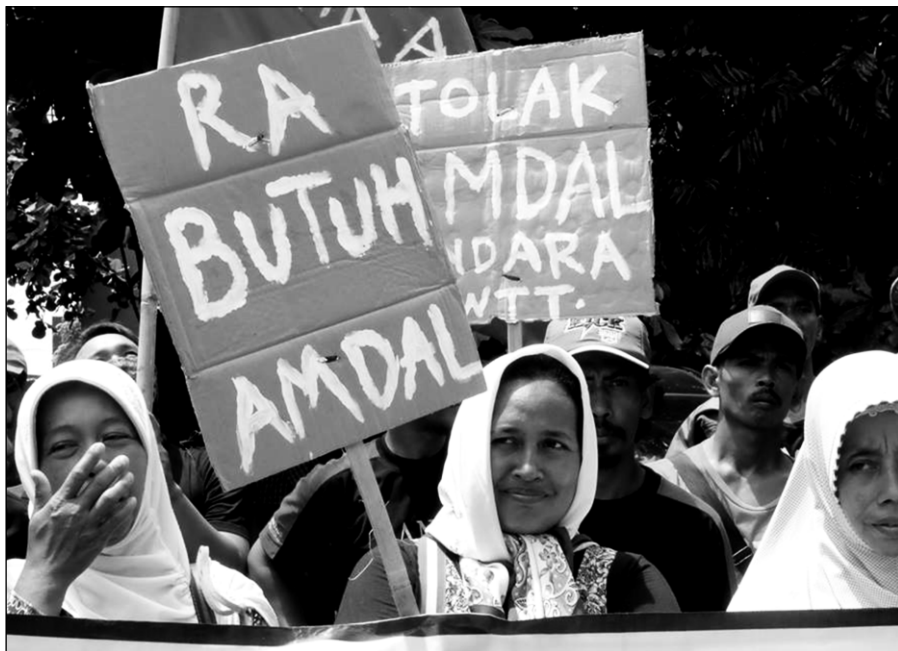 RA
BUTUH
AMDAL
TOLAK
MDAL
NDARA
WTT.